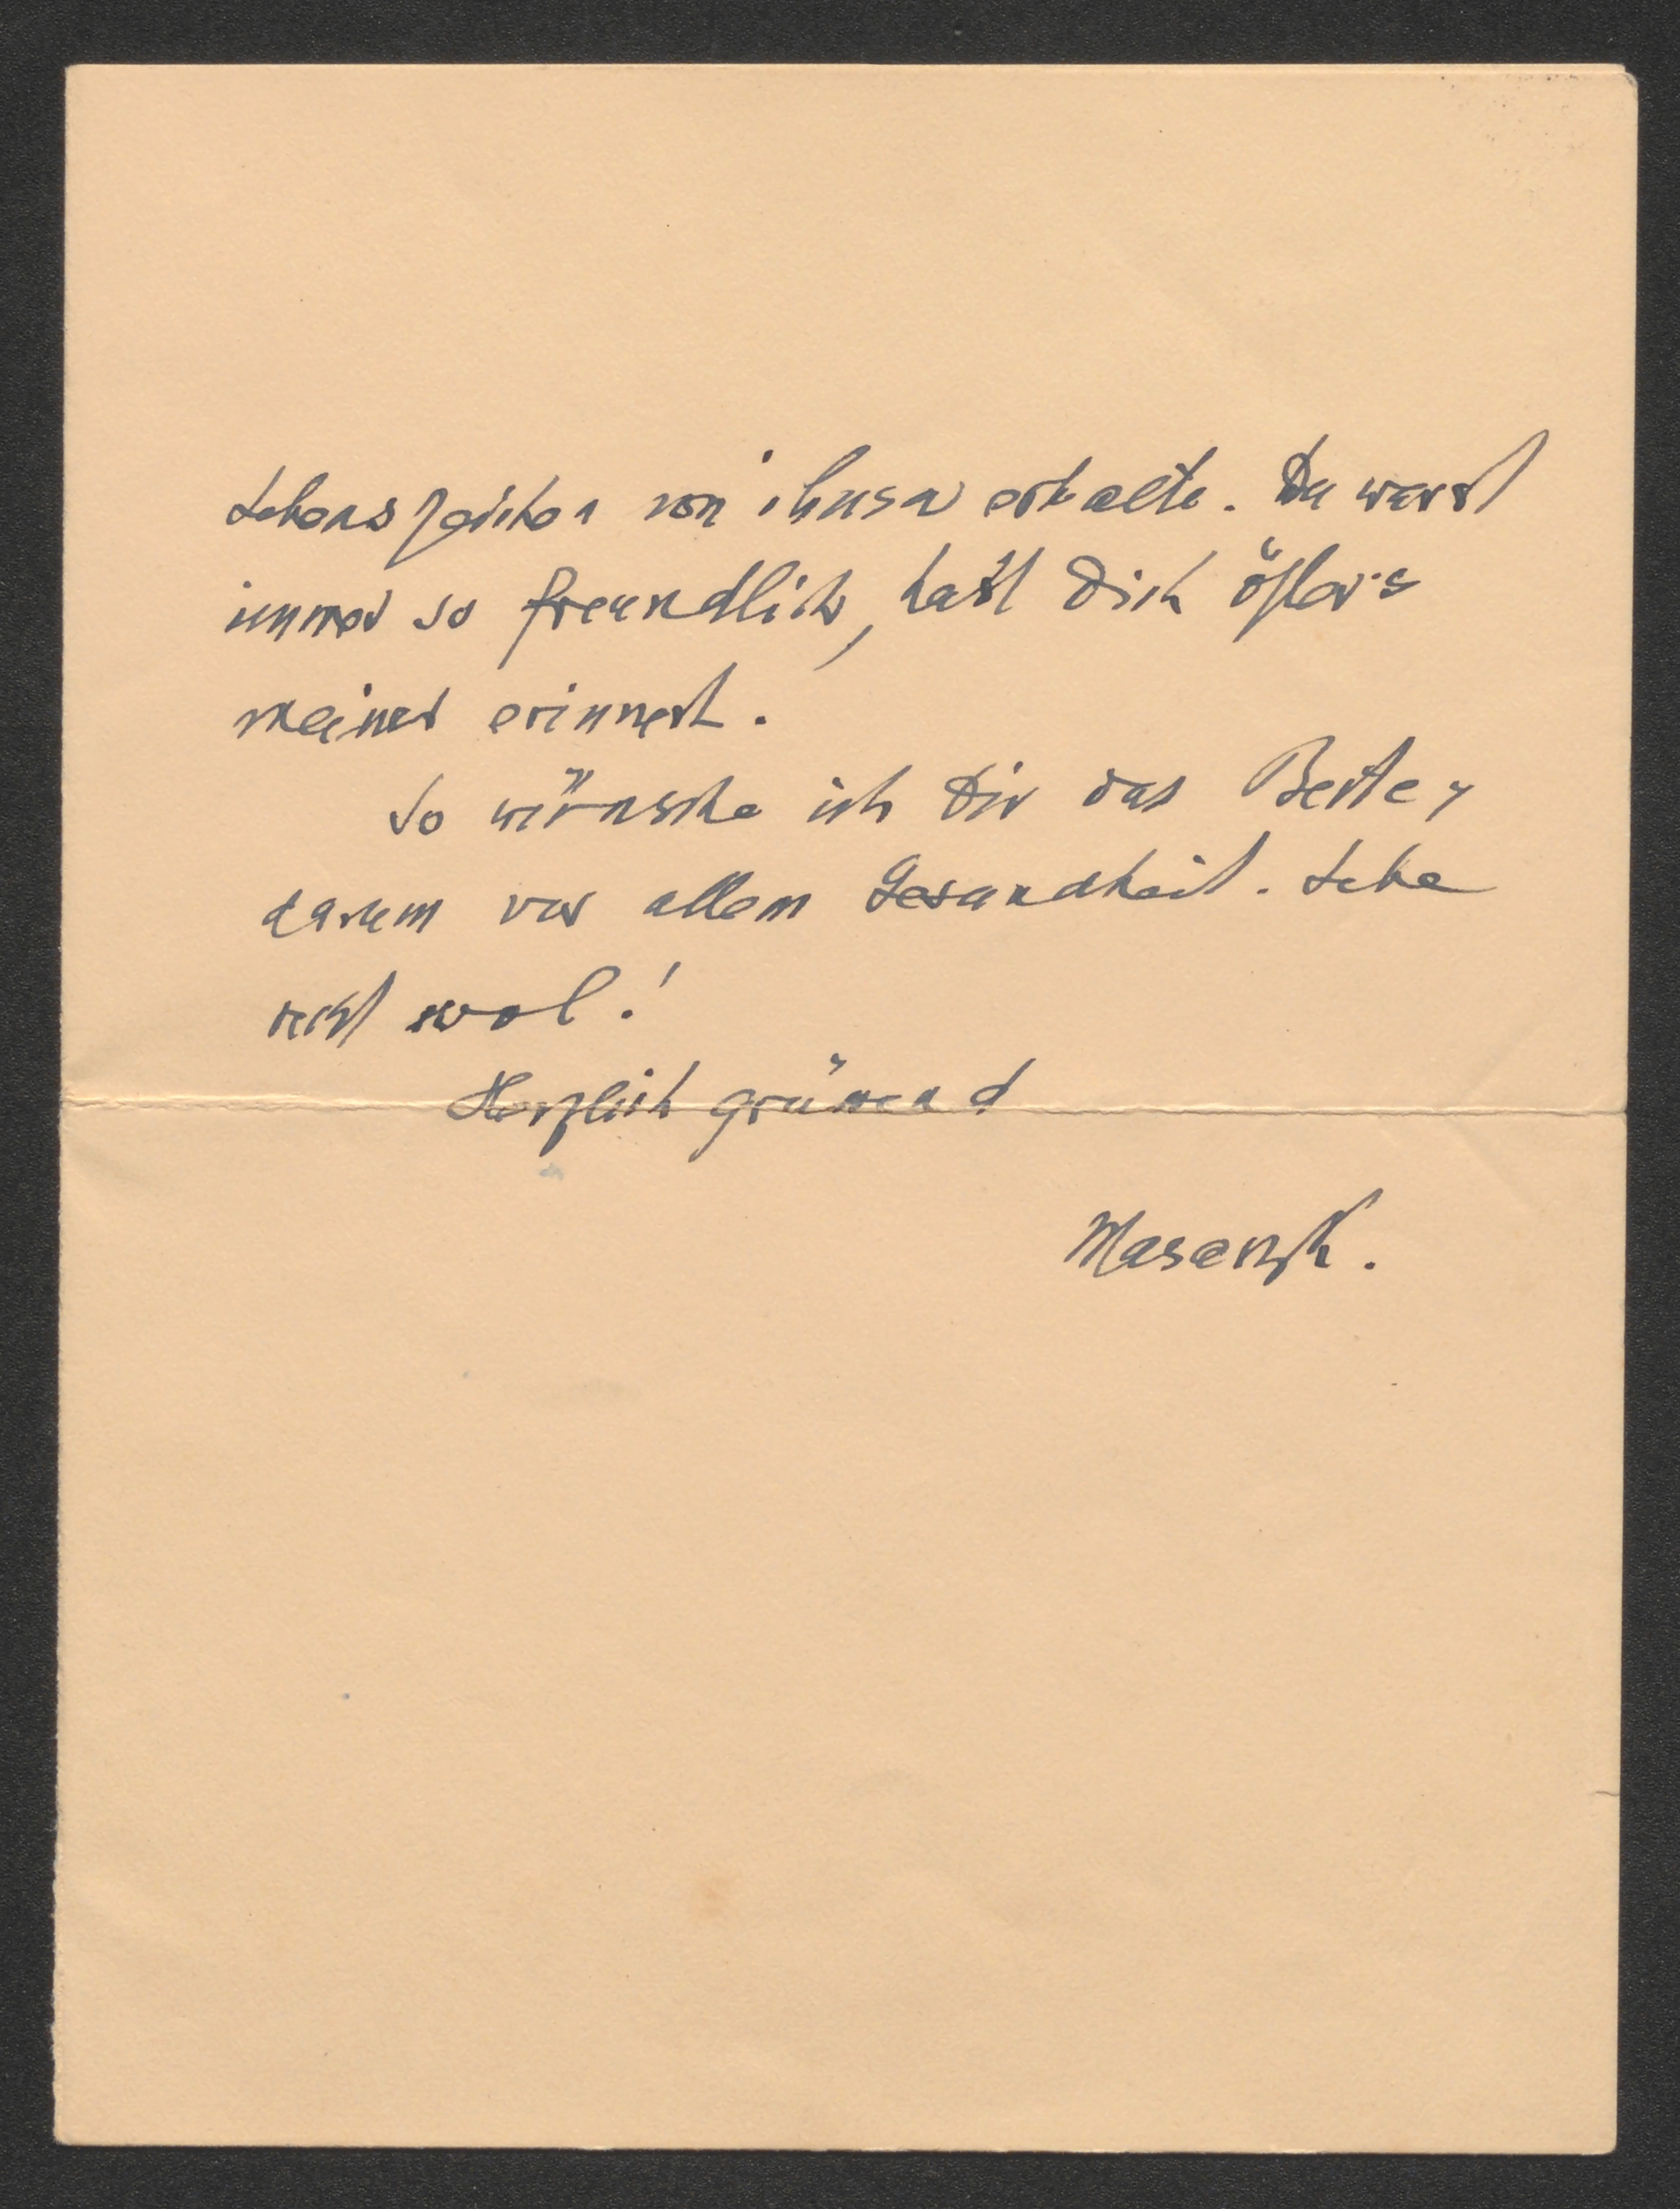 Lebenszeichen von ihnen erhalte. Du warst
immer so freundlich, hast Dich öfters
meiner erinnert.
So wünsche ich Dir das Beste,
darum vor allem Gesundheit. Lebe
recht wol!
Herzlich grüssend
Masaryk.